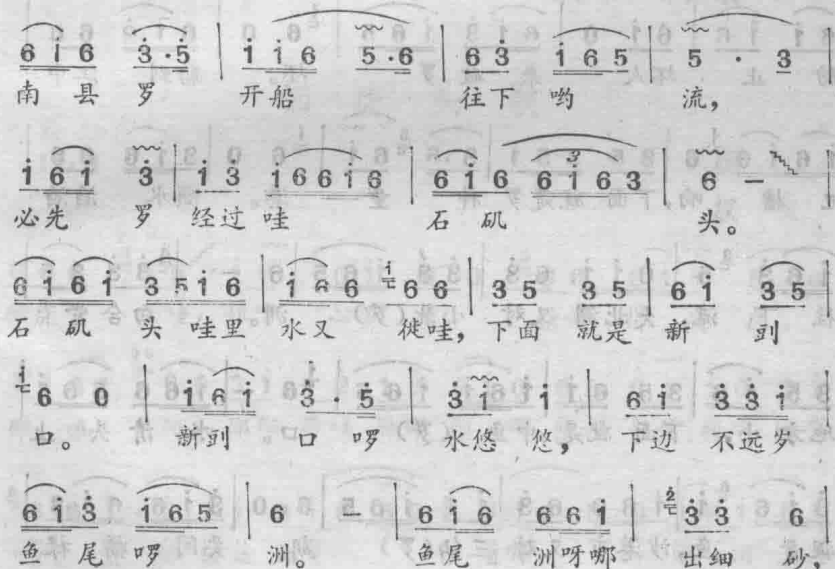 6 i 6 3·5 | i i 6 5·6 | 6 3 i 6 5 | 5 · 3 |
南县 罗 开船 往下 哟 流,
i 6 i 3 | i 3 i 6 6 i 6 | 6 i 6 6 i 6 3 | 6 —
3
必先 罗 经过 哇 石 矶 头。
6 i 6 i 3 5 i 6 | i 6 6 i 6 6 | 3 5 3 5 | 6 i 3 5 |
石 矶 头 哇里 水又 徙哇, 下面 就是 新 到
i 6 0 | i 6 i 3 · 5 | 3 i i i | 6 i 3 3 i |
口。 新到 口 啰 水悠 悠, 下边 不远罗
6 i 3 i 6 5 | 6 — | 6 i 6 6 6 i | 2 3 3 6 |
鱼 尾 啰 洲。 鱼尾 洲呀哪 出细 砂,